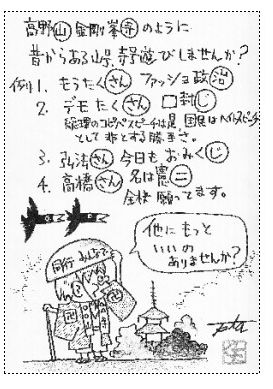 高野山 金剛峯寺のように
昔からある山号、寺号遊びしませんか?
例) 1. もうたくさん ファッショ政治
2. デモたくさん 口封じ
総理のコピペスピーチは是、国民はヘイトスピーチ
として非とする勝手さ。
3. 弘法さん 今日もおみくじ
4. 高橋さん 名は憲二
全快願ってます。
他にもっと
いいの
ありませんか?
同行みんなで